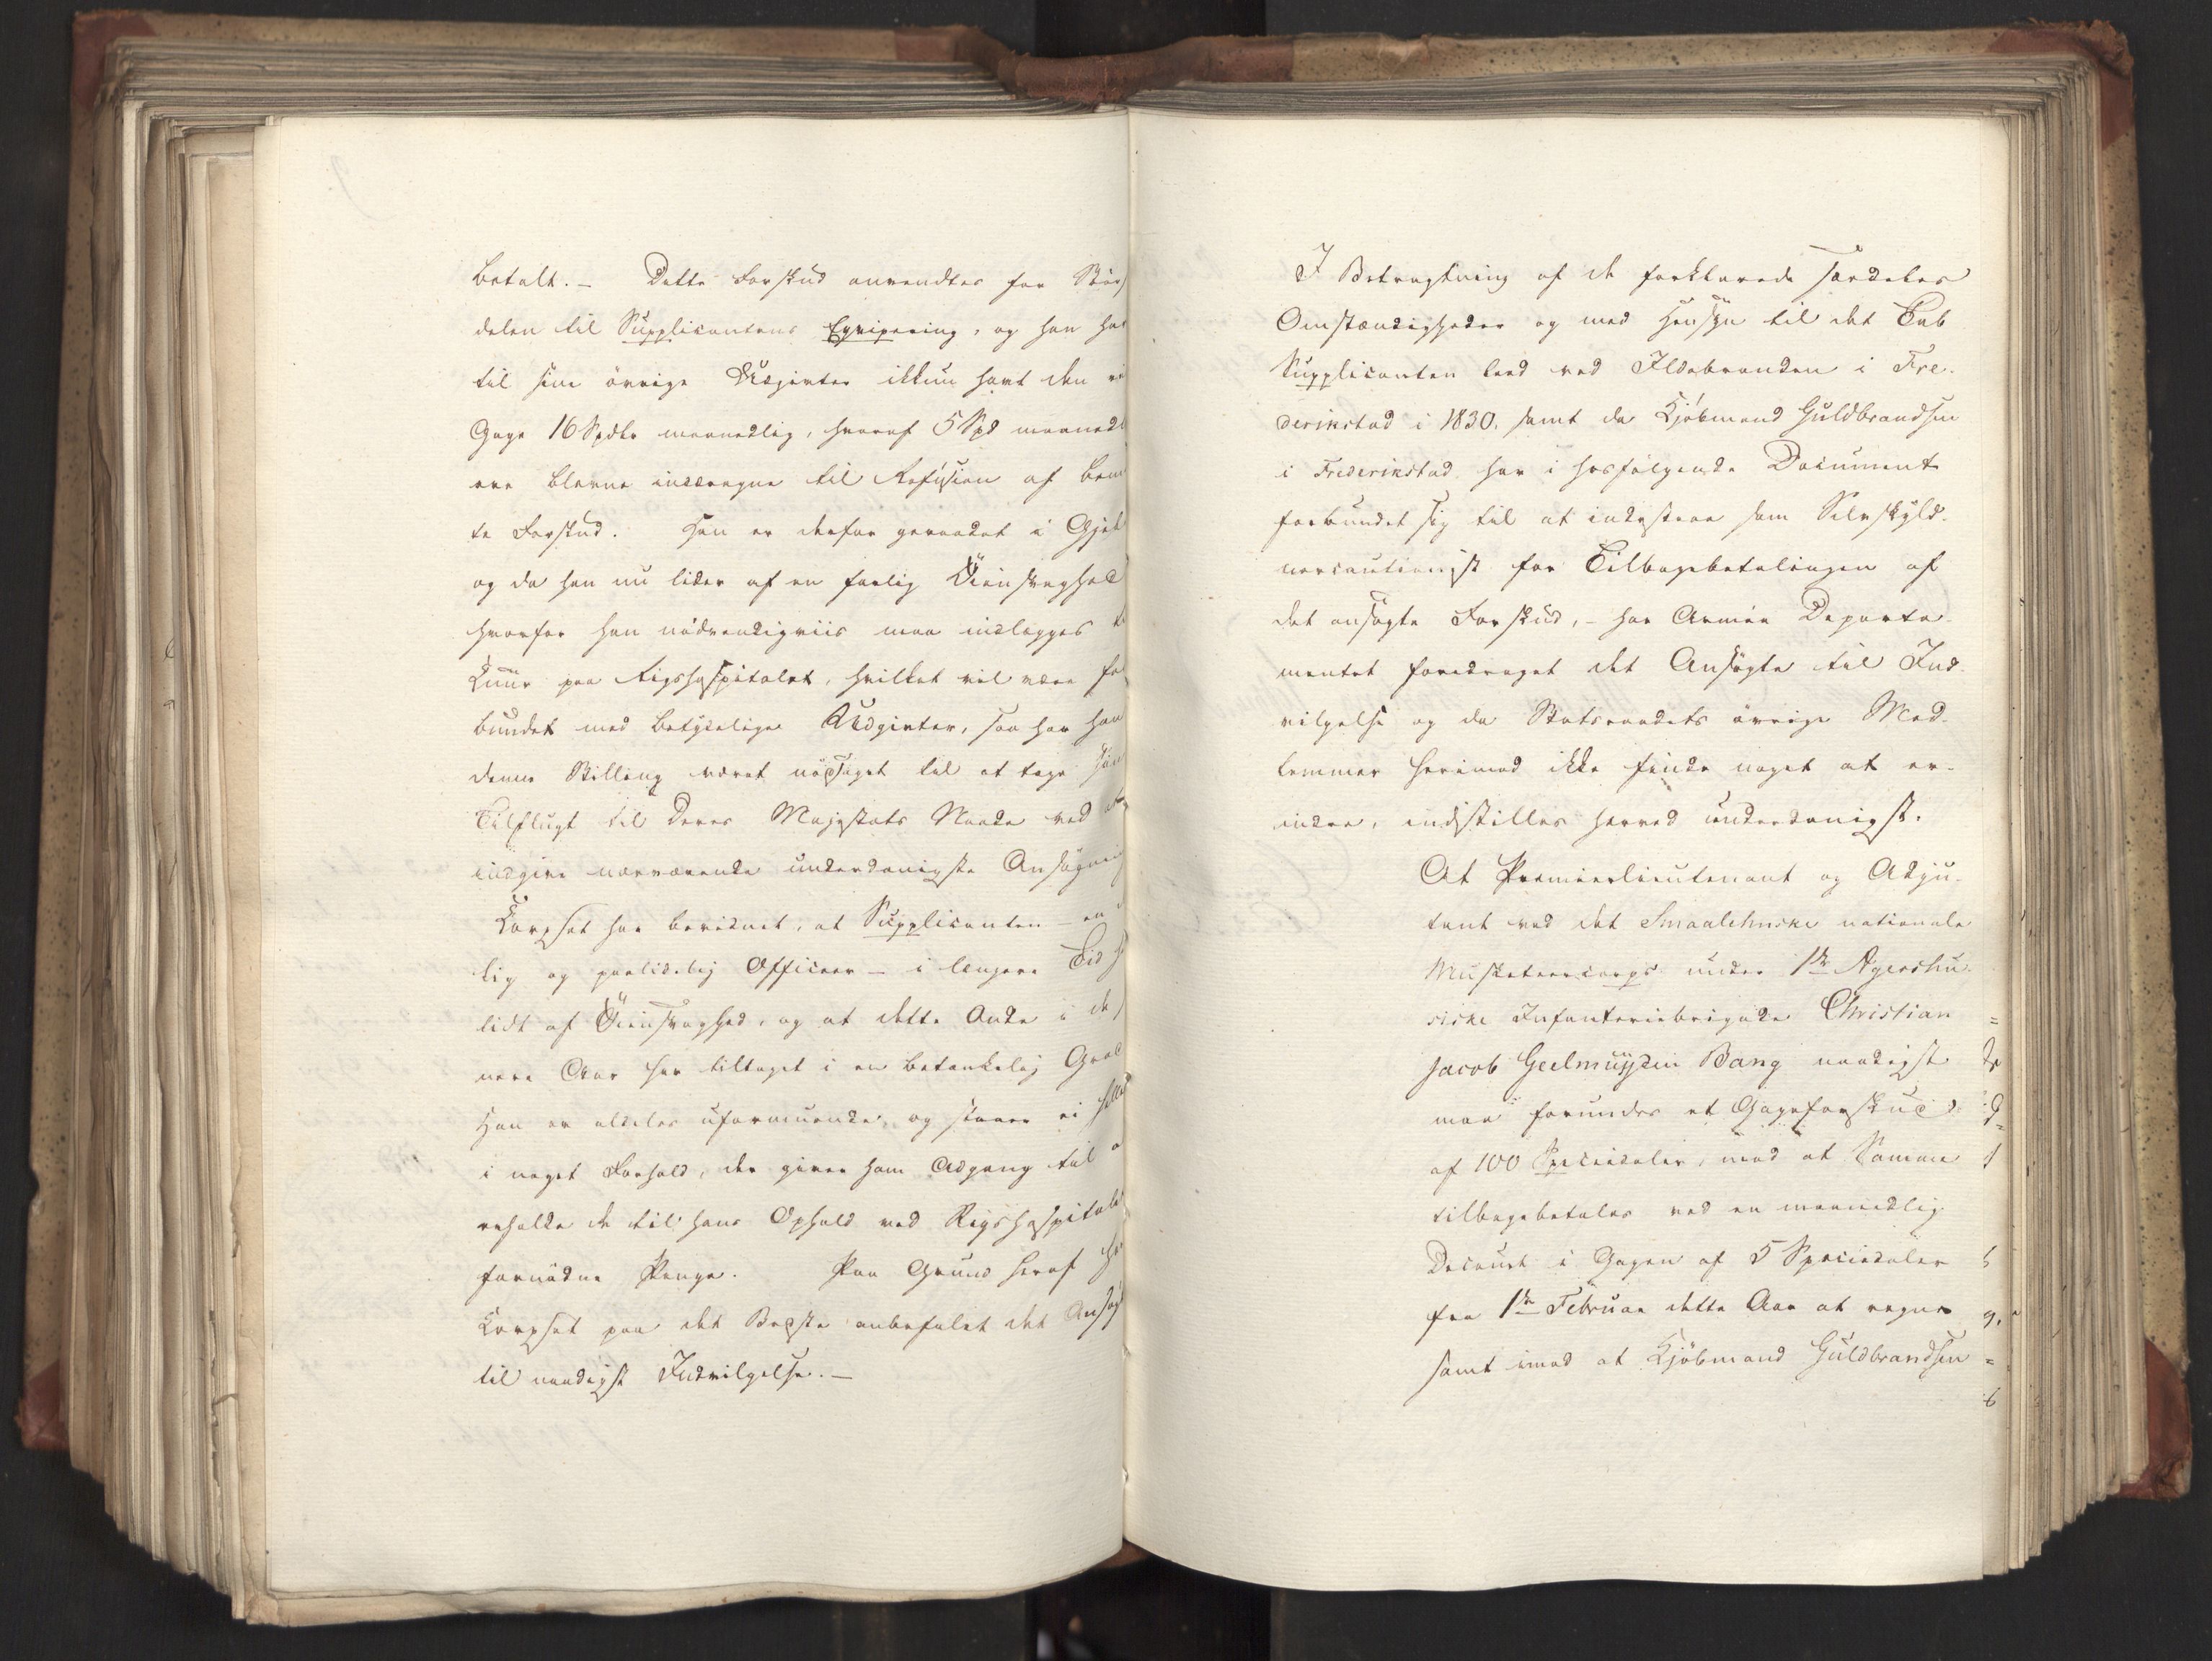 betalt. – Dette Forskud anvendtes for Stør
delen til Supplicantens Eqviperinng, og han har
til sine øvrige Udgivter ikkun havt den
Gage 16 Spdlr maanedlig, hvoraf 5 Spd maanedl
ere blevne inddragne til Refusion af bem
te Forskud. Han er derfor geraadet i Gjæl
og da han nu lider af en farlig Øiensvaghed
hvorfor han nødvendigviis maa indlægges
Kuur paa Rigshospitalet, hvilket vil være for
bundet med betydelige Udgivter, saa har han
denne Stilling været nødsaget til at tage sin
Tilflugt til Deres Majestæts Naade ved at
indgive nærværende underdanigste Ansøgning
Korpset har bevidnet, at Supplicanten – en
lig og paalidelig Officeer – i længere Tid h
lidt af Øiensvaghed, og at dette Onde i de s
nere Aar har tiltaget i en betænkelig Grad
Han er aldeles uformuende, og staaer ei heller
i noget Forhold, der giver ham Adgang til a
erholde de til hans Ophold ved Rigshospitale
fornødne Penge. Paa Grund heraf ha
Korpset paa det Bedste anbefalet det Ansøg
til naadigst Indvilgelse. –
I Betragtning af de forklarede særdeles
Omstændigheder og med Hensyn til det Tab
Supplicanten leed ved Ildebranden i Fre-
derikstad i 1830, samt da Kjøbmand Guldbrandsen
i Frederikstad har i hosfølgende Document
forbundet sig til at indestaae som Selvskyld-
nercautionist for Tilbagebetalingen af
det ansøgte Forskud, – har Armee Departe-
mentet foredraget det Ansøgte til Ind-
vilgelse og da Statsraadets øvrige Med-
lemmer herimod ikke finde noget at er-
indre, indstilles herved underdanigst.
At Premierlieutenant og Adju-
tant ved det Smaalehnske nationale
Musketeercorps under 1ste Agershu-
siske Infanteriebrigade Christian
Jacob Geelmuyden Bang naadigst
maa forundes et Gageforskud
af 100 Speciedaler, mod at Samme
tilbagebetales ved en maanedlig
Decourt i Gagen af 5 Speciedaler
fra 1ste Februar dette Aar at regne
samt imod at Kjøbmand Guldbrandsen